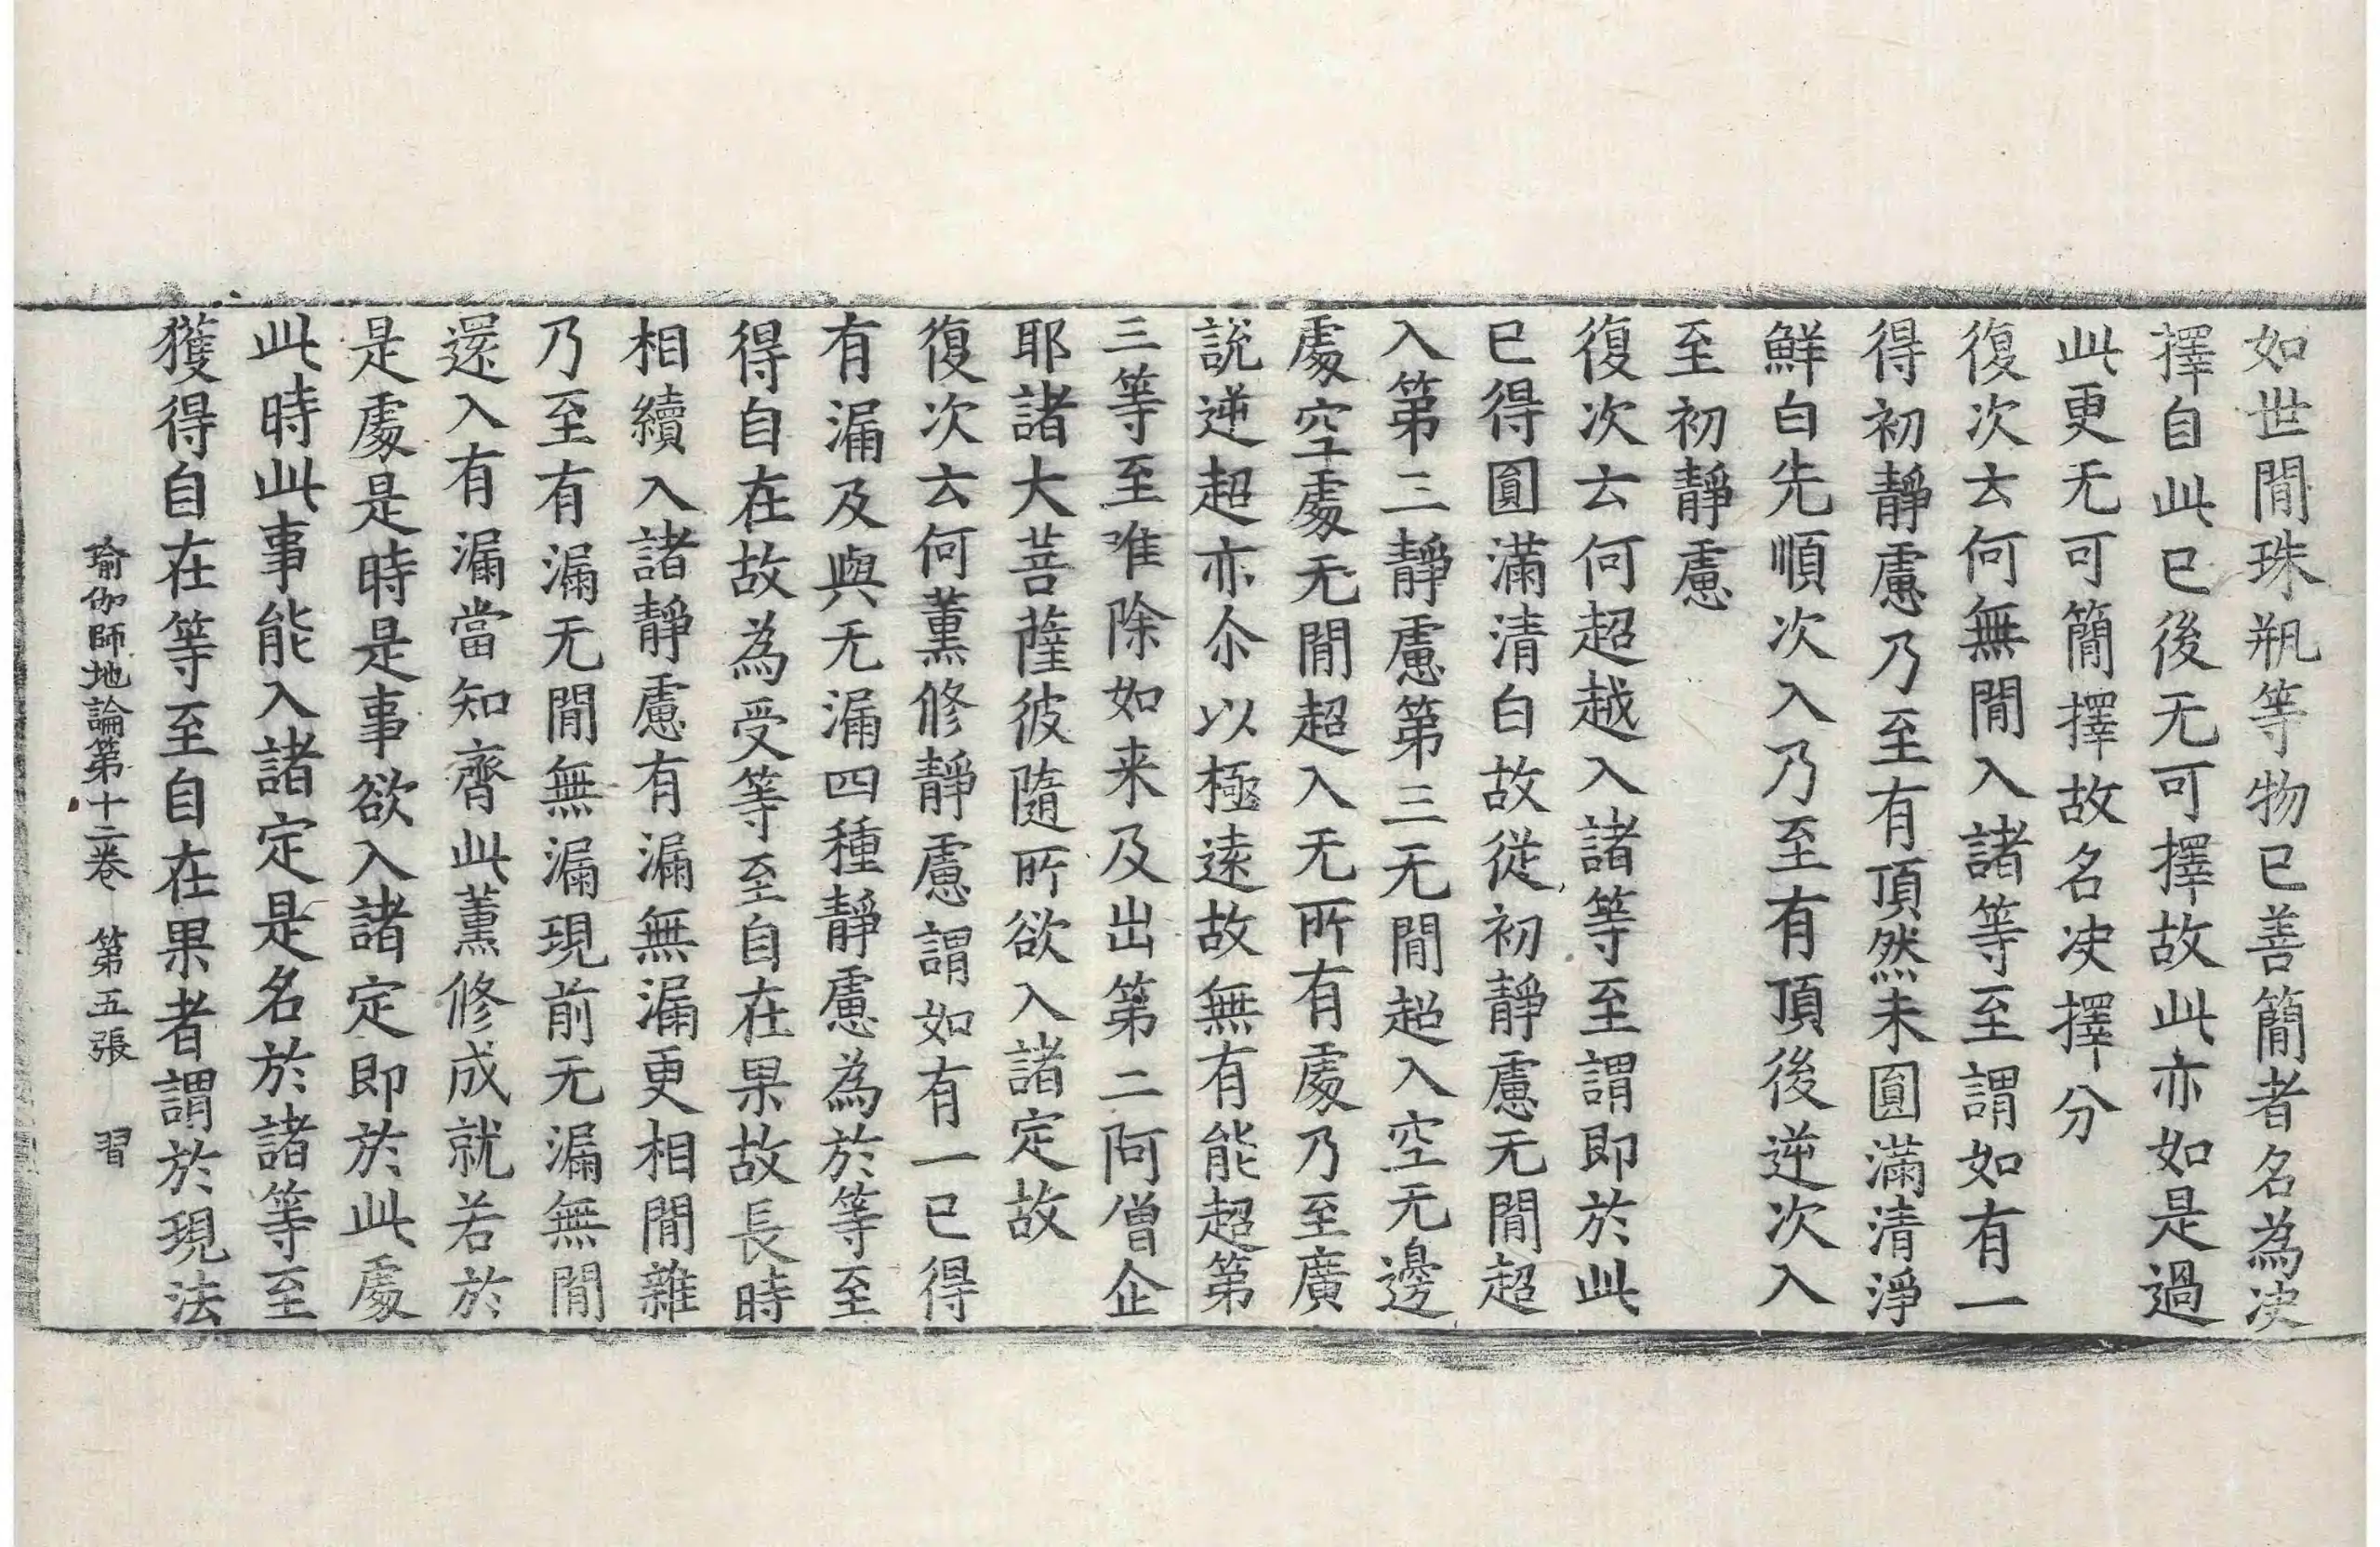 如世閒珠瓶等物已善簡者名為决
擇自此已後无可擇故此亦如是過
此更无可簡擇故名决擇分
復次云何無閒入諸等至謂如有一
得初靜慮乃至有頂然未圓滿清淨
鮮白先順次入乃至有頂後逆次入
至初靜慮
復次云何超越入諸等至謂即於此
已得圓滿清白故從初靜慮无閒超
入第三靜慮第三无閒超入空无邊
處空處无閒超入无所有處乃至廣
說逆超亦尒以極遠故無有能超第
三等至唯除如来及出第二阿僧企
耶諸大菩薩彼隨所欲入諸定故
復次云何薰修靜慮謂如有一已得
有漏及與无漏四種靜慮為於等至
得自在故為受等至自在果故長時
相續入諸靜慮有漏無漏更相閒雜
乃至有漏无閒無漏現前无漏無閒
還入有漏當知齊此薰修成就若於
是處是時是事欲入諸定即於此處
此時此事能入諸定是名於諸等至
獲得自在等至自在果者謂於現法
瑜伽師地論第十二卷 第五張 習